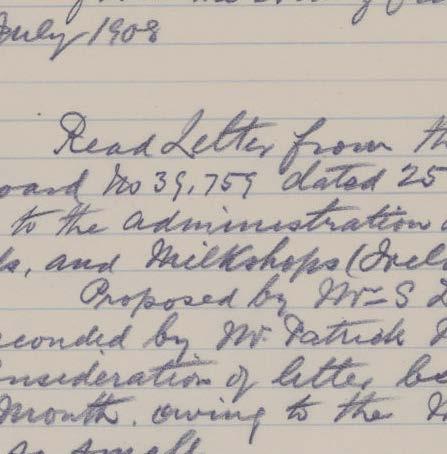 July 1908
Read Letter from th
oard No 39,759 dated 25
to the administration
ds, and Milkshops (Irela
Proposed by Mr S
econded by Mr. Patrick
nsideration of letter be
Month. owing to the
so small